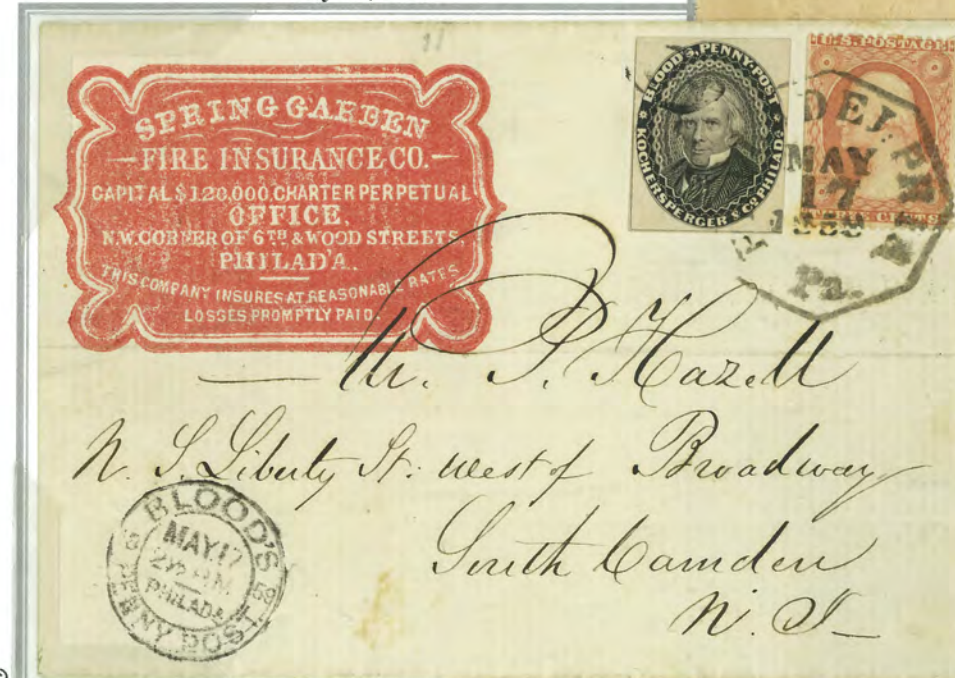 11
SPRING GARDEN
FIRE INSURANCE CO.
CAPITAL $120,000. CHARTER PERPETUAL
OFFICE,
N.W. CORNER OF 6TH & WOOD STREETS,
PHILAD'A.
THIS COMPANY INSURES AT REASONABLE RATES
LOSSES PROMPTLY PAID.
BLOOD'S, PENNY-POST
KOCHERSPERGER & CO. PHILADA
U.S. POSTAGE
CENTS
MAY
17
Pa.
Mr. P. Hazell
N. S. Liberty St: west of Broadway
South Camden
N. J—
BLOOD'S
MAY 17
2½ P.M.
PHILADA
59
PENNY POST